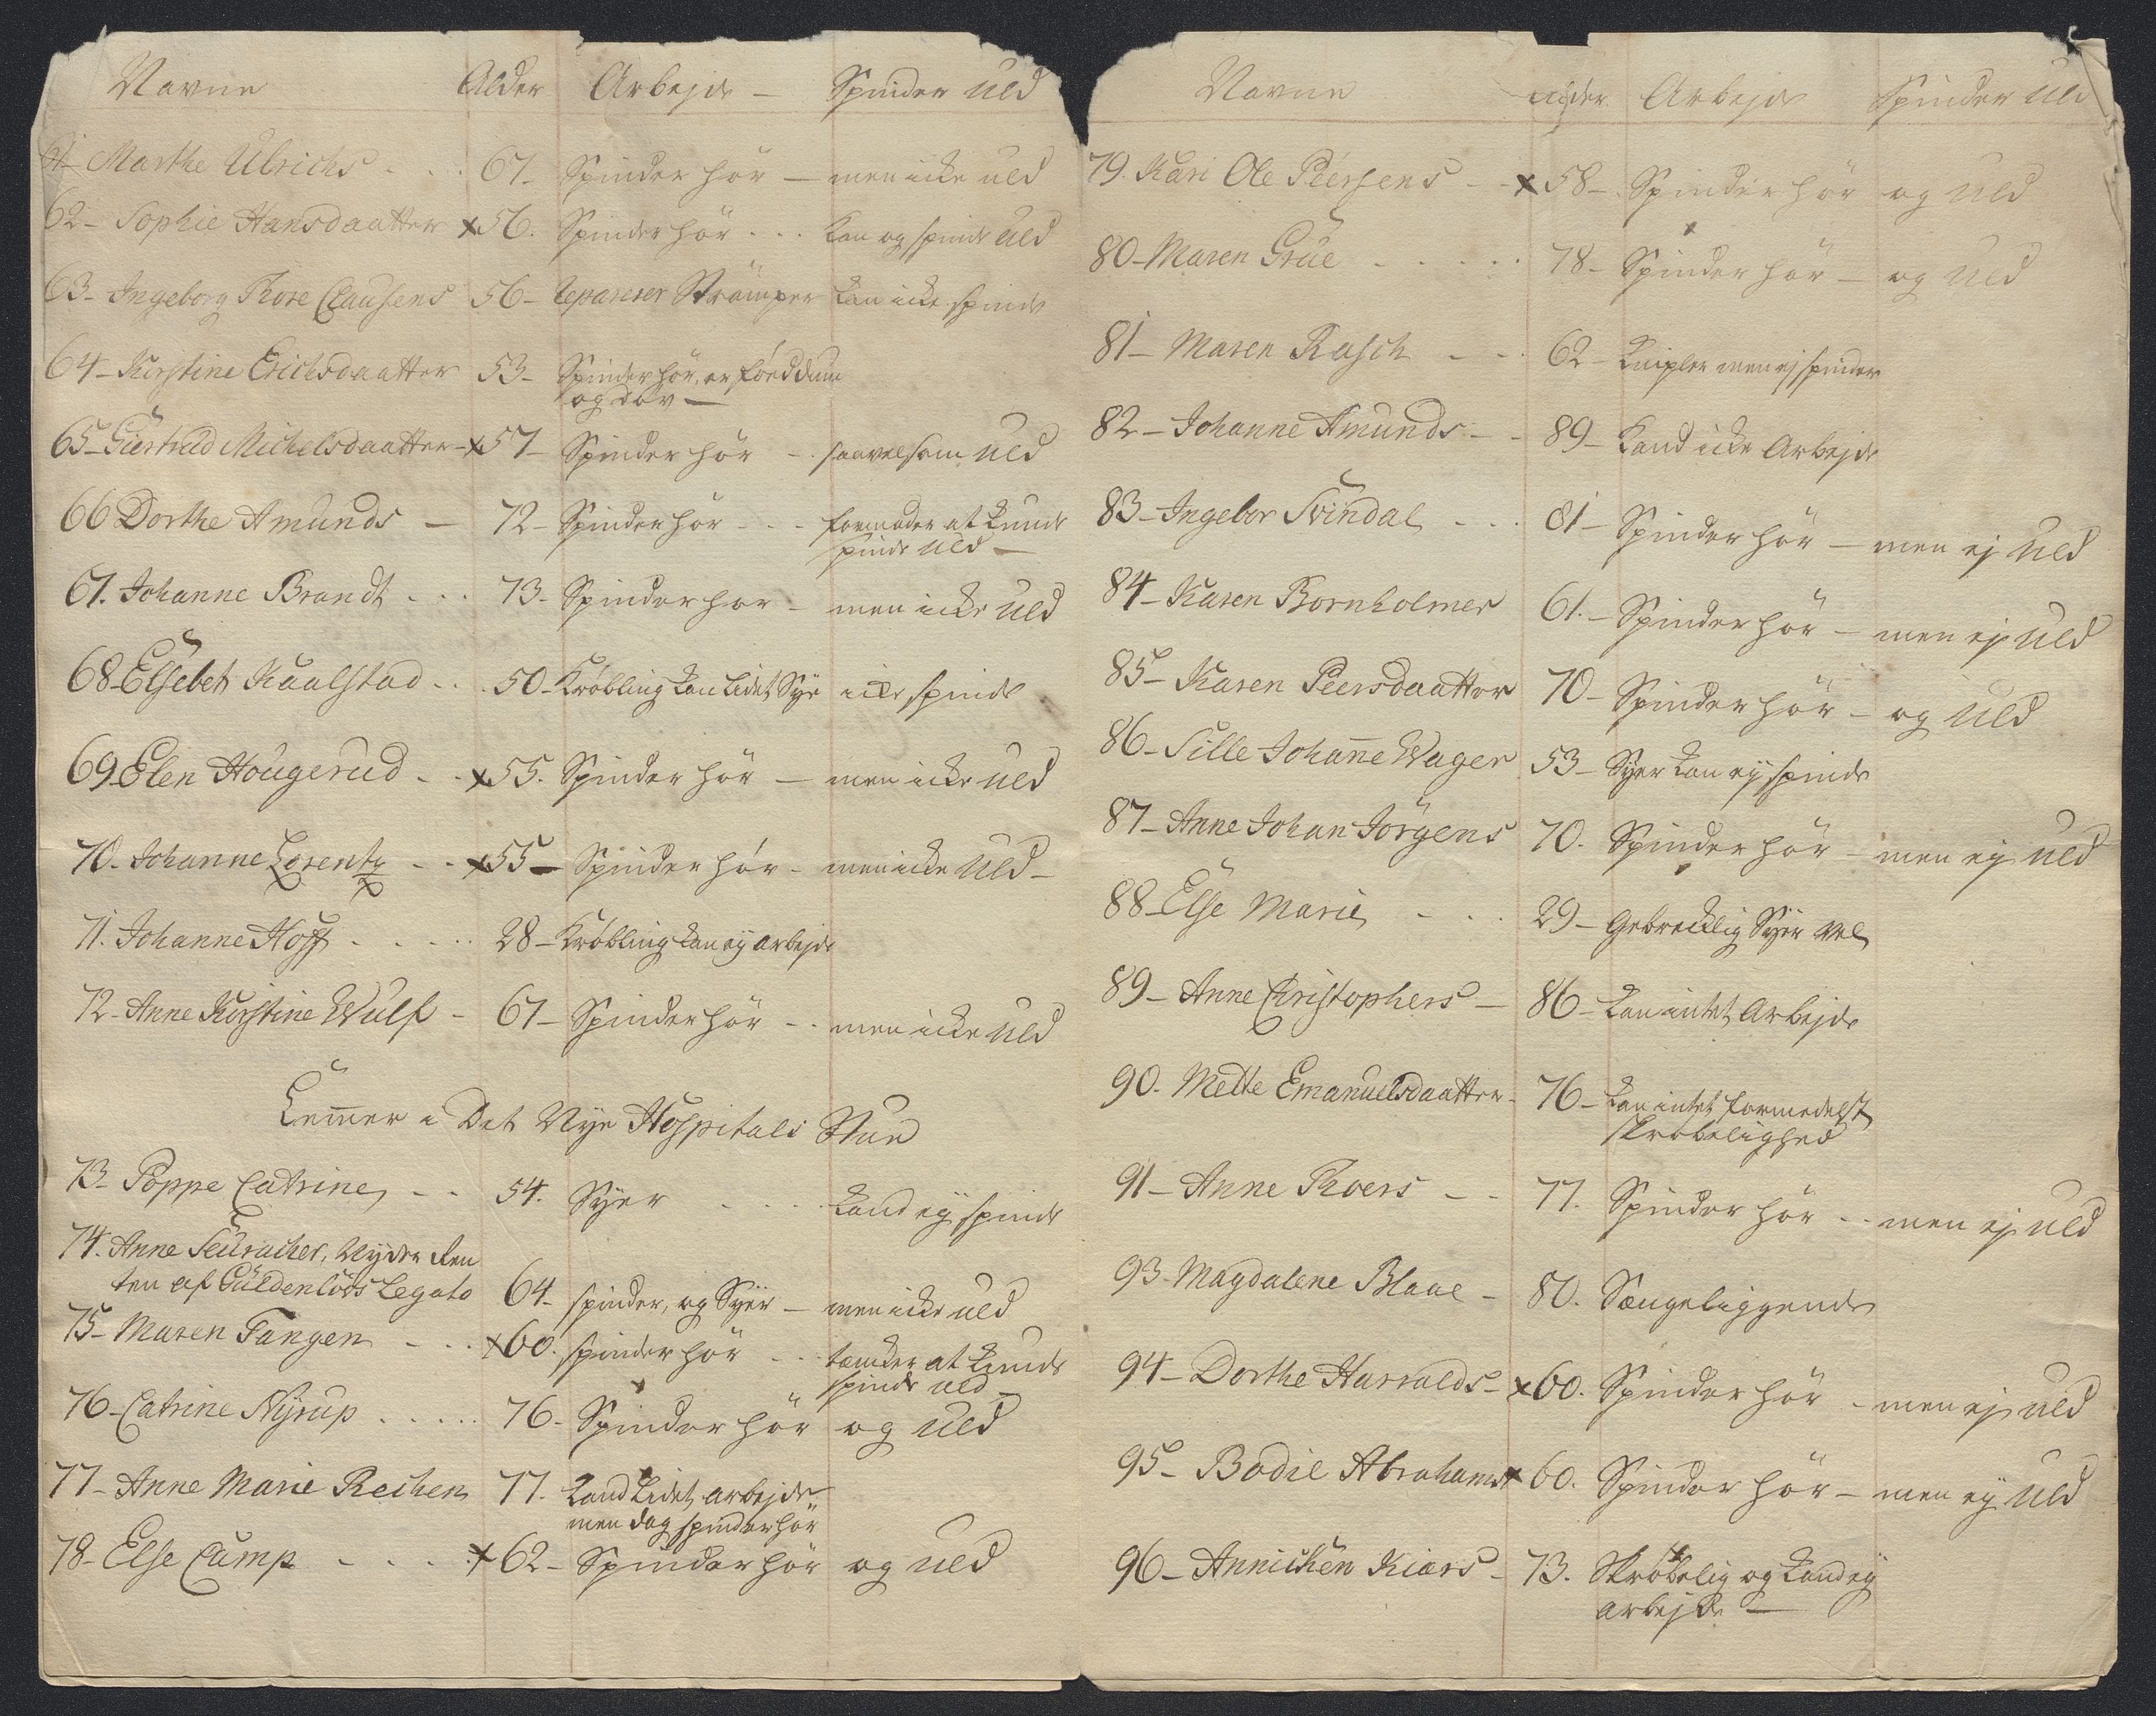 Navne Alder Arbejde - Spinder Uld
61 Marthe Ulrichs - - - 67- Spinder hör - men icke uld
62- Sophie Hansdaatter x 56. Spinder hör - - - kan og spinde Uld
63- Ingeborg Thore Clausens 56- Reparerer Strömper kan icke spinde
64- Kirstine Erichsdaatter 53- Spinder hör, er föed dum
og döv -
65- Giertrud Michelsdaatter - x 57- Spinder hör - - saavelsom Uld
66 Dorthe Amunds - 72- Spinder hör - - - formoder at kunde
spinde Uld -
67. Johanne Brandt - - - 73- Spinder hör - men icke Uld
68- Elsebet Kaalstad - - 50- Kröbling kan lidet Sye icke spinde
69 Elen Hougerud - - x 55. Spinder hör - men icke Uld
70. Johanne Lorentz - - x 55- Spinder hör - men icke Uld -
71. Johanne Hoff - - - - - 28- Kröbling kan ej arbejde
72- Anne Kirstine Wulf - 67- Spinder hör - - men icke Uld
Lemmer i Det Nye Hospitals Stue
73- Poppe Catrine - - 54. Syer - - - - kand ej spinde
74. Anne Seuracher, Nyder Ren
ten af Güldenlöes Legato 64- spinder, og Syer - men icke uld
75- Maren Fangen - - - x 60. spinder hör - - tænker at kunde
spinde uld
76- Catrine Nyrup - - - - - 76- Spinder hör og Uld
77- Anne Marie Reihen 77. kand Lidet arbejde
men dog spinder hör
78- Else Camp - - - - x 62- Spinder hör og uld
Navne Alder Arbejde Spinder Uld
79. Kari Ole Peersens - - x 58- Spinder hör og Uld
80- Maren Grüe - - - - - 78- Spinder hör - og Uld
81- Maren Rasch - - - 62- Knipler men ej spinder
82- Johanne Amunds - - 89- Kand icke Arbejde
83- Ingebor Svindal - - - 81- Spinder hör - men ej Uld
84- Karen Bornholmer 61.- Spinder hör - men ej Uld
85- Karen Peersdaatter 70- Spinder hör - og Uld
86- Sille Johanne Wager 53- Syer kan ej spinde
87- Anne Johan Jörgens 70. Spinder hör - men ej Uld
88- Else Marie - - - 29- Gebrecklig Syer Vel
89- Anne Christophers - 86- kan intet Arbejde
90. Mette Emanuelsdaatter - 76- kan intet formedelst
skröbelighed
91- Anne Thoers - - 77. Spinder hör - - men ej Uld
93- Magdalene Blaae - 80. Sængeliggende
94- Dorthe Harralds - x 60. Spinder hör - men ej uld
95- Bodil Abrahams x 60. Spinder hör - men ej Uld
96- Annichen Kiærs - 73. Skröbelig og kand ej
arbejde -